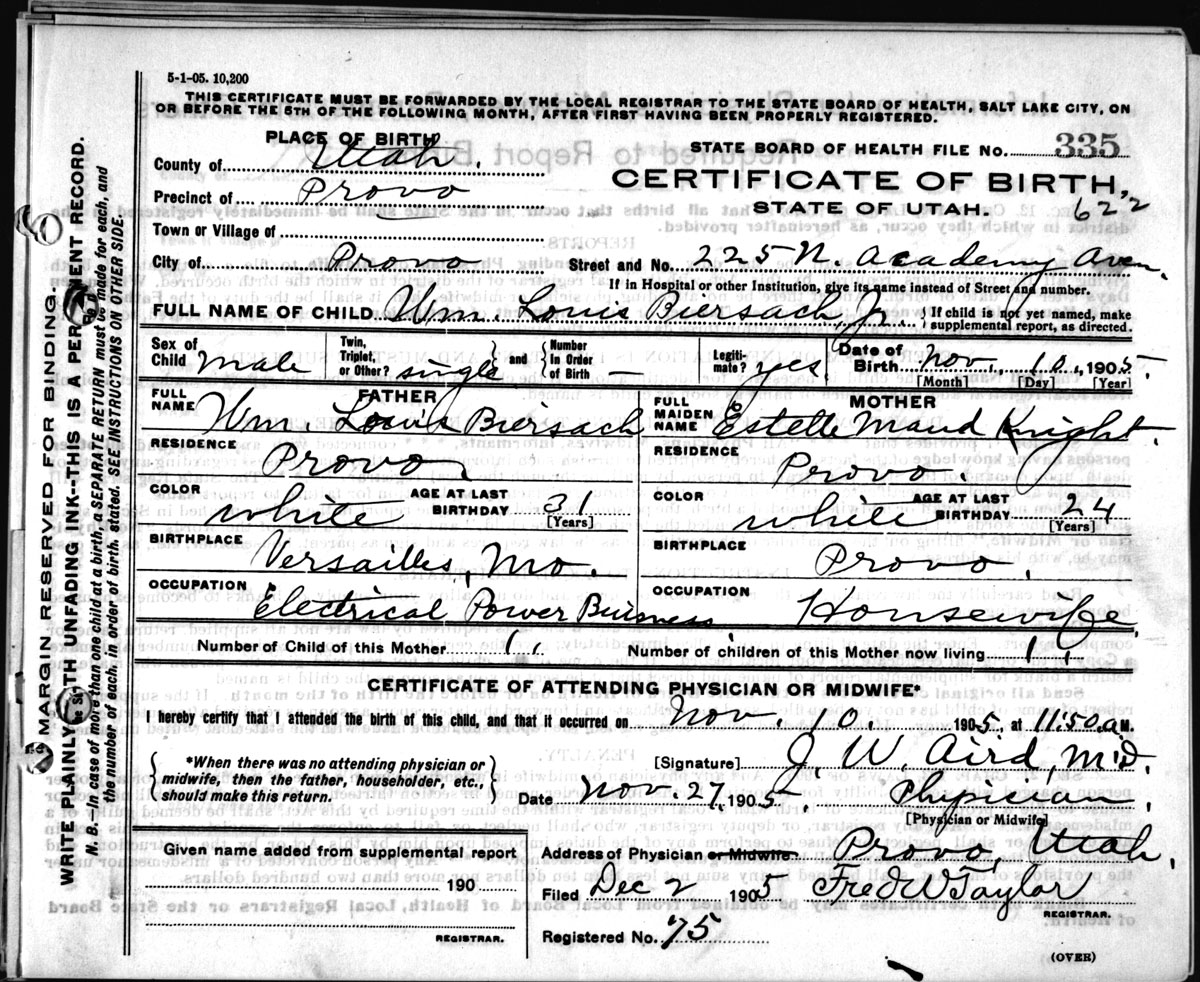 5-1-05. 10,200
THIS CERTIFICATE MUST BE FORWARDED BY THE LOCAL REGISTRAR TO THE STATE BOARD OF HEALTH, SALT LAKE CITY, ON
OR BEFORE THE 5TH OF THE FOLLOWING MONTH, AFTER FIRST HAVING BEEN PROPERLY REGISTERED.
PLACE OF BIRTH
STATE BOARD OF HEALTH FILE No. 335
County of Utah.
CERTIFICATE OF BIRTH,
Precinct of Provo
STATE OF UTAH. 622
Town or Village of
City of Provo Street and No. 225 N. Academy Aven.
If in Hospital or other Institution, give its name instead of Street and number.
FULL NAME OF CHILD Wm. Louis Biersach, Jr. { If child is not yet named, make
supplemental report, as directed.
Sex of Child Male Twin, Triplet, or Other? single and Number in Order of Birth — Legiti-mate? yes Date of Birth Nov. 10, 1905
[Month] [Day] [Year]
FATHER MOTHER
FULL NAME Wm Louis Biersach FULL MAIDEN NAME Estelle Maud Knight.
RESIDENCE Provo. RESIDENCE Provo.
COLOR white AGE AT LAST BIRTHDAY 31 [Years] COLOR white AGE AT LAST BIRTHDAY 24 [Years]
BIRTHPLACE Versailles, Mo. BIRTHPLACE Provo.
OCCUPATION Electrical Power Business OCCUPATION Housewife
Number of Child of this Mother 1 Number of children of this Mother now living 1
CERTIFICATE OF ATTENDING PHYSICIAN OR MIDWIFE*
I hereby certify that I attended the birth of this child, and that it occurred on Nov. 10, 1905, at 11:50 a M.
*When there was no attending physician or
midwife, then the father, householder, etc.,
should make this return.
[Signature] J. W. Aird, M.D.
Date Nov. 27, 1905. Physician.
[Physician or Midwife]
Given name added from supplemental report
190
REGISTRAR.
Address of Physician or Midwife Provo, Utah.
Filed Dec 2 1905 Fred W Taylor
REGISTRAR.
Registered No. 75
(OVER)
MARGIN RESERVED FOR BINDING.
WRITE PLAINLY WITH UNFADING INK--THIS IS A PERMANENT RECORD.
N. B.—In case of more than one child at a birth, a SEPARATE RETURN must be made for each, and
the number of each, in order of birth, stated. SEE INSTRUCTIONS ON OTHER SIDE.